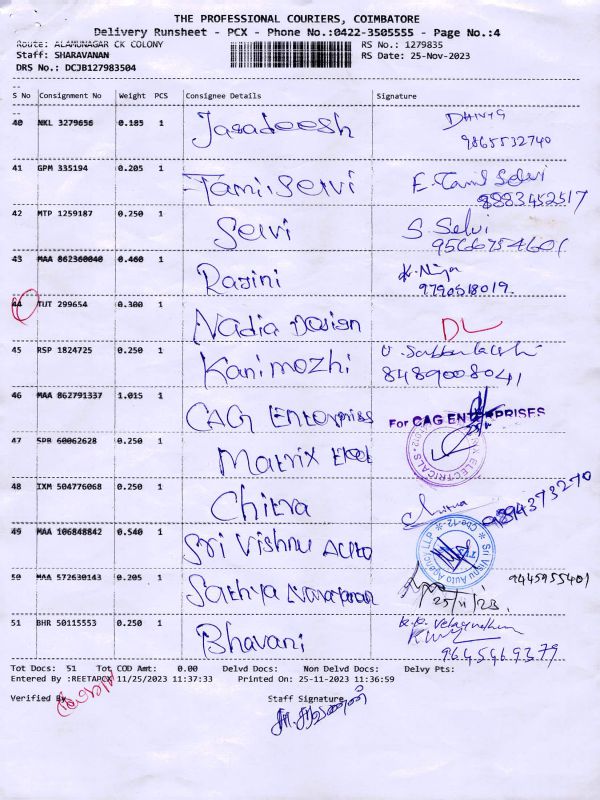 THE PROFESSIONAL COURIERS, COIMBATORE
Delivery Runsheet - PCX - Phone No.:0422-3505555 - Page No.:4
Route: ALAMUNAGAR CK COLONY RS No.: 1279835
Staff: SHARAVANAN RS Date: 25-Nov-2023
DRS No.: DCJB127983504
S No Consignment No Weight PCS Consignee Details Signature
40 NKL 3279656 0.185 1 Jagadeesh
9865532740
41 GPM 335194 0.205 1 Tamil Selvi E. Tamil Selvi
8883452517
42 MTP 1259187 0.250 1 Selvi S. Selvi
9566754601
43 MAA 862360040 0.460 1 Rajini
9790518019.
44 TUT 299654 0.300 1 Nadia Design DL
45 RSP 1824725 0.250 1 Kanimozhi
8489008041
46 MAA 862791337 1.015 1 CAG Enterprises For CAG ENTERPRISES
47 SPB 60062628 0.250 1 Matrix
48 IXM 504776068 0.250 1 Chitra Chitra 9894373270
49 MAA 106848842 0.540 1 Sri Vishnu Auto Sri Vishnu Auto Agency LLP Cbe-12
50 MAA 572630143 0.205 1 Sathya 9445955401
25/11/23.
51 BHR 50115553 0.250 1 Bhavani
9645469379
Tot Docs: 51 Tot COD Amt: 0.00 Delvd Docs: Non Delvd Docs: Delvy Pts:
Entered By :REETAPCX 11/25/2023 11:37:33 Printed On: 25-11-2023 11:36:59
Verified By Staff Signature